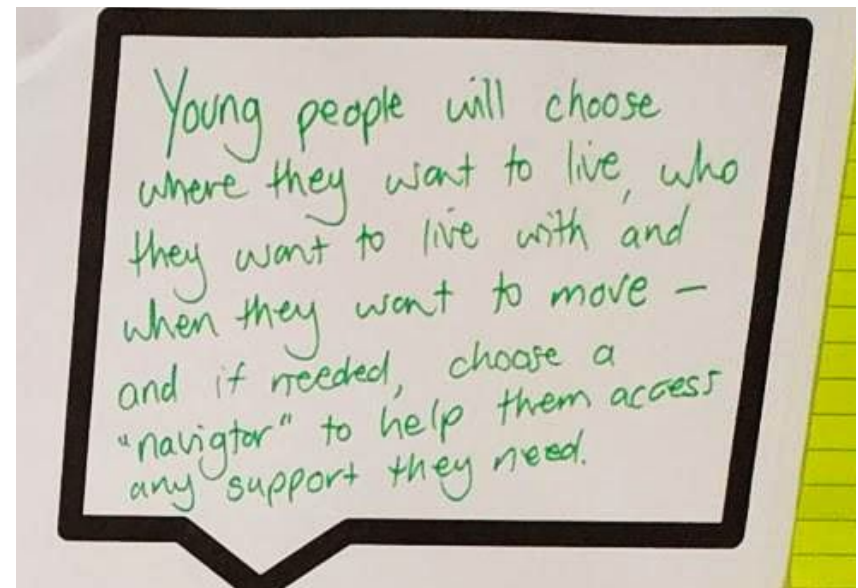 Young people will choose
where they want to live, who
they want to live with and
when they want to move –
and if needed, choose a
"navigtor" to help them access
any support they need.